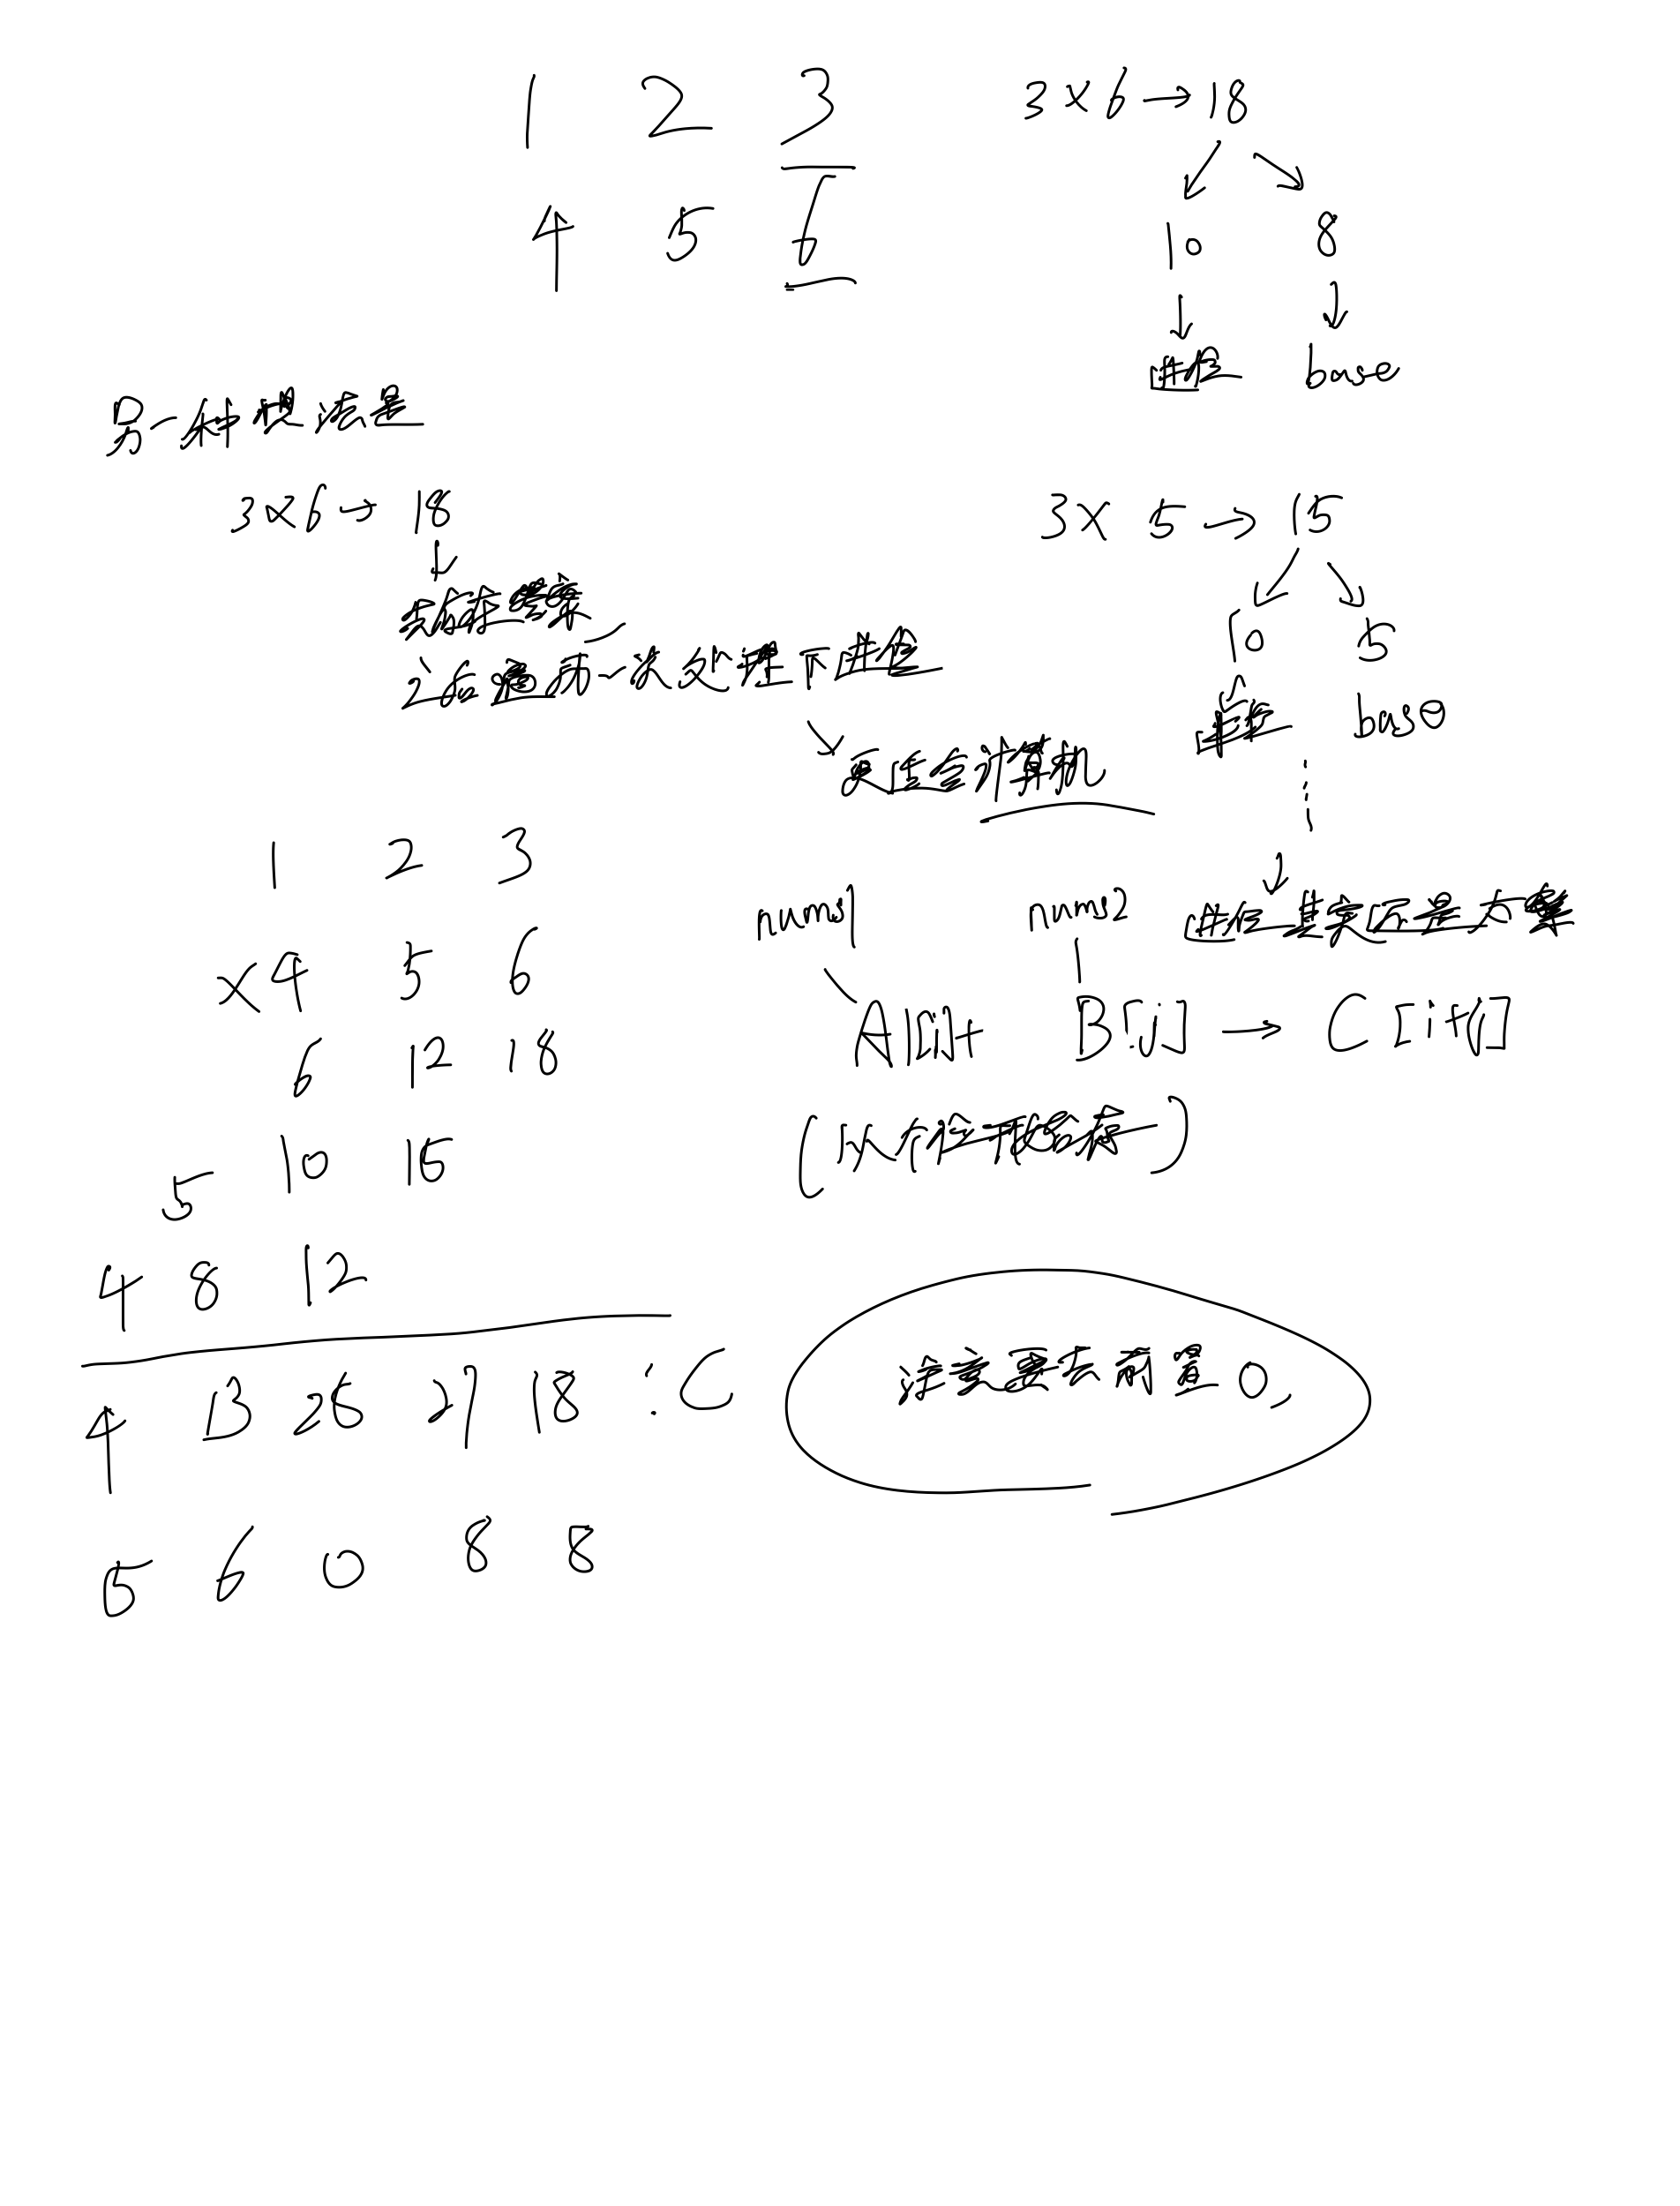 1 2 3
4 5 6
3 × 6 → 18
10 8
进位 base
另一种想法是
3 × 6 → 18
先存在答案
之后遍历一次处理下进位
更适合计算机
3 × 5 → 15
10 5
进位 base
进位其实还是太繁
1 2 3
× 4 5 6
6 12 18
5 10 15
4 8 12
4 13 28 27 18 : C
5 6 0 8 8
nums1 nums2
A[i]+ B[j] → C[i+j]
(从个位开始存)
注意要去前置0,